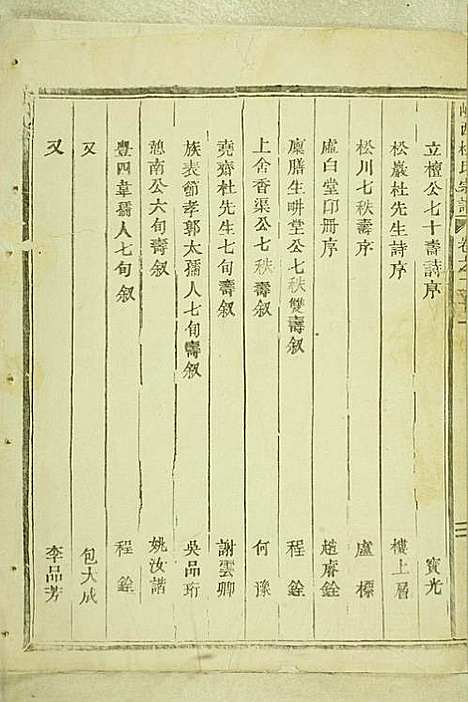 杜氏宗譜 卷之
立檀公七十壽詩序 寶光
松巖杜先生詩序 樓上層
松川七秩壽序 盧標
虛白堂印冊序 趙睿銓
廩膳生畊堂公七秩雙壽叙 程銓
上舍香渠公七秩壽叙 何豫
堯齋杜先生七旬壽叙 謝雲卿
族表節孝郭太孺人七旬壽叙 吳品珩
憩南公六旬壽叙 姚汝諧
豐四韋孺人七旬叙 程銓
又 包大成
又 李品芳